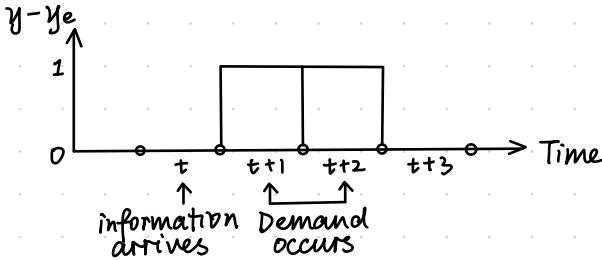 y-ye
1
0
Time
t
t+1
t+2
t+3
information
arrives
Demand
occurs